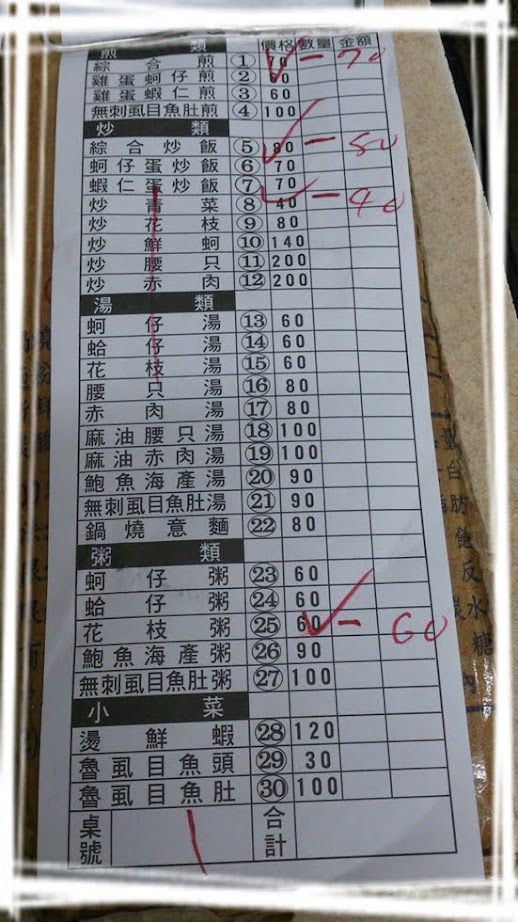 煎類 價格 數量 金額
綜合煎 ① 70 – 70
雞蛋蚵仔煎 ② 60
雞蛋蝦仁煎 ③ 60
無刺虱目魚肚煎 ④ 100
炒類
綜合炒飯 ⑤ 80 – 80
蚵仔蛋炒飯 ⑥ 70
蝦仁蛋炒飯 ⑦ 70
炒青菜 ⑧ 40 – 40
炒花枝 ⑨ 80
炒鮮蚵 ⑩ 140
炒腰只 ⑪ 200
炒赤肉 ⑫ 200
湯類
蚵仔湯 ⑬ 60
蛤仔湯 ⑭ 60
花枝湯 ⑮ 60
腰只湯 ⑯ 80
赤肉湯 ⑰ 80
麻油腰只湯 ⑱ 100
麻油赤肉湯 ⑲ 100
鮑魚海產湯 ⑳ 90
無刺虱目魚肚湯 ㉑ 90
鍋燒意麵 ㉒ 80
粥類
蚵仔粥 ㉓ 60
蛤仔粥 ㉔ 60
花枝粥 ㉕ 60 – 60
鮑魚海產粥 ㉖ 90
無刺虱目魚肚粥 ㉗ 100
小菜
燙鮮蝦 ㉘ 120
魯虱目魚頭 ㉙ 30
魯虱目魚肚 ㉚ 100
桌號 1 合計